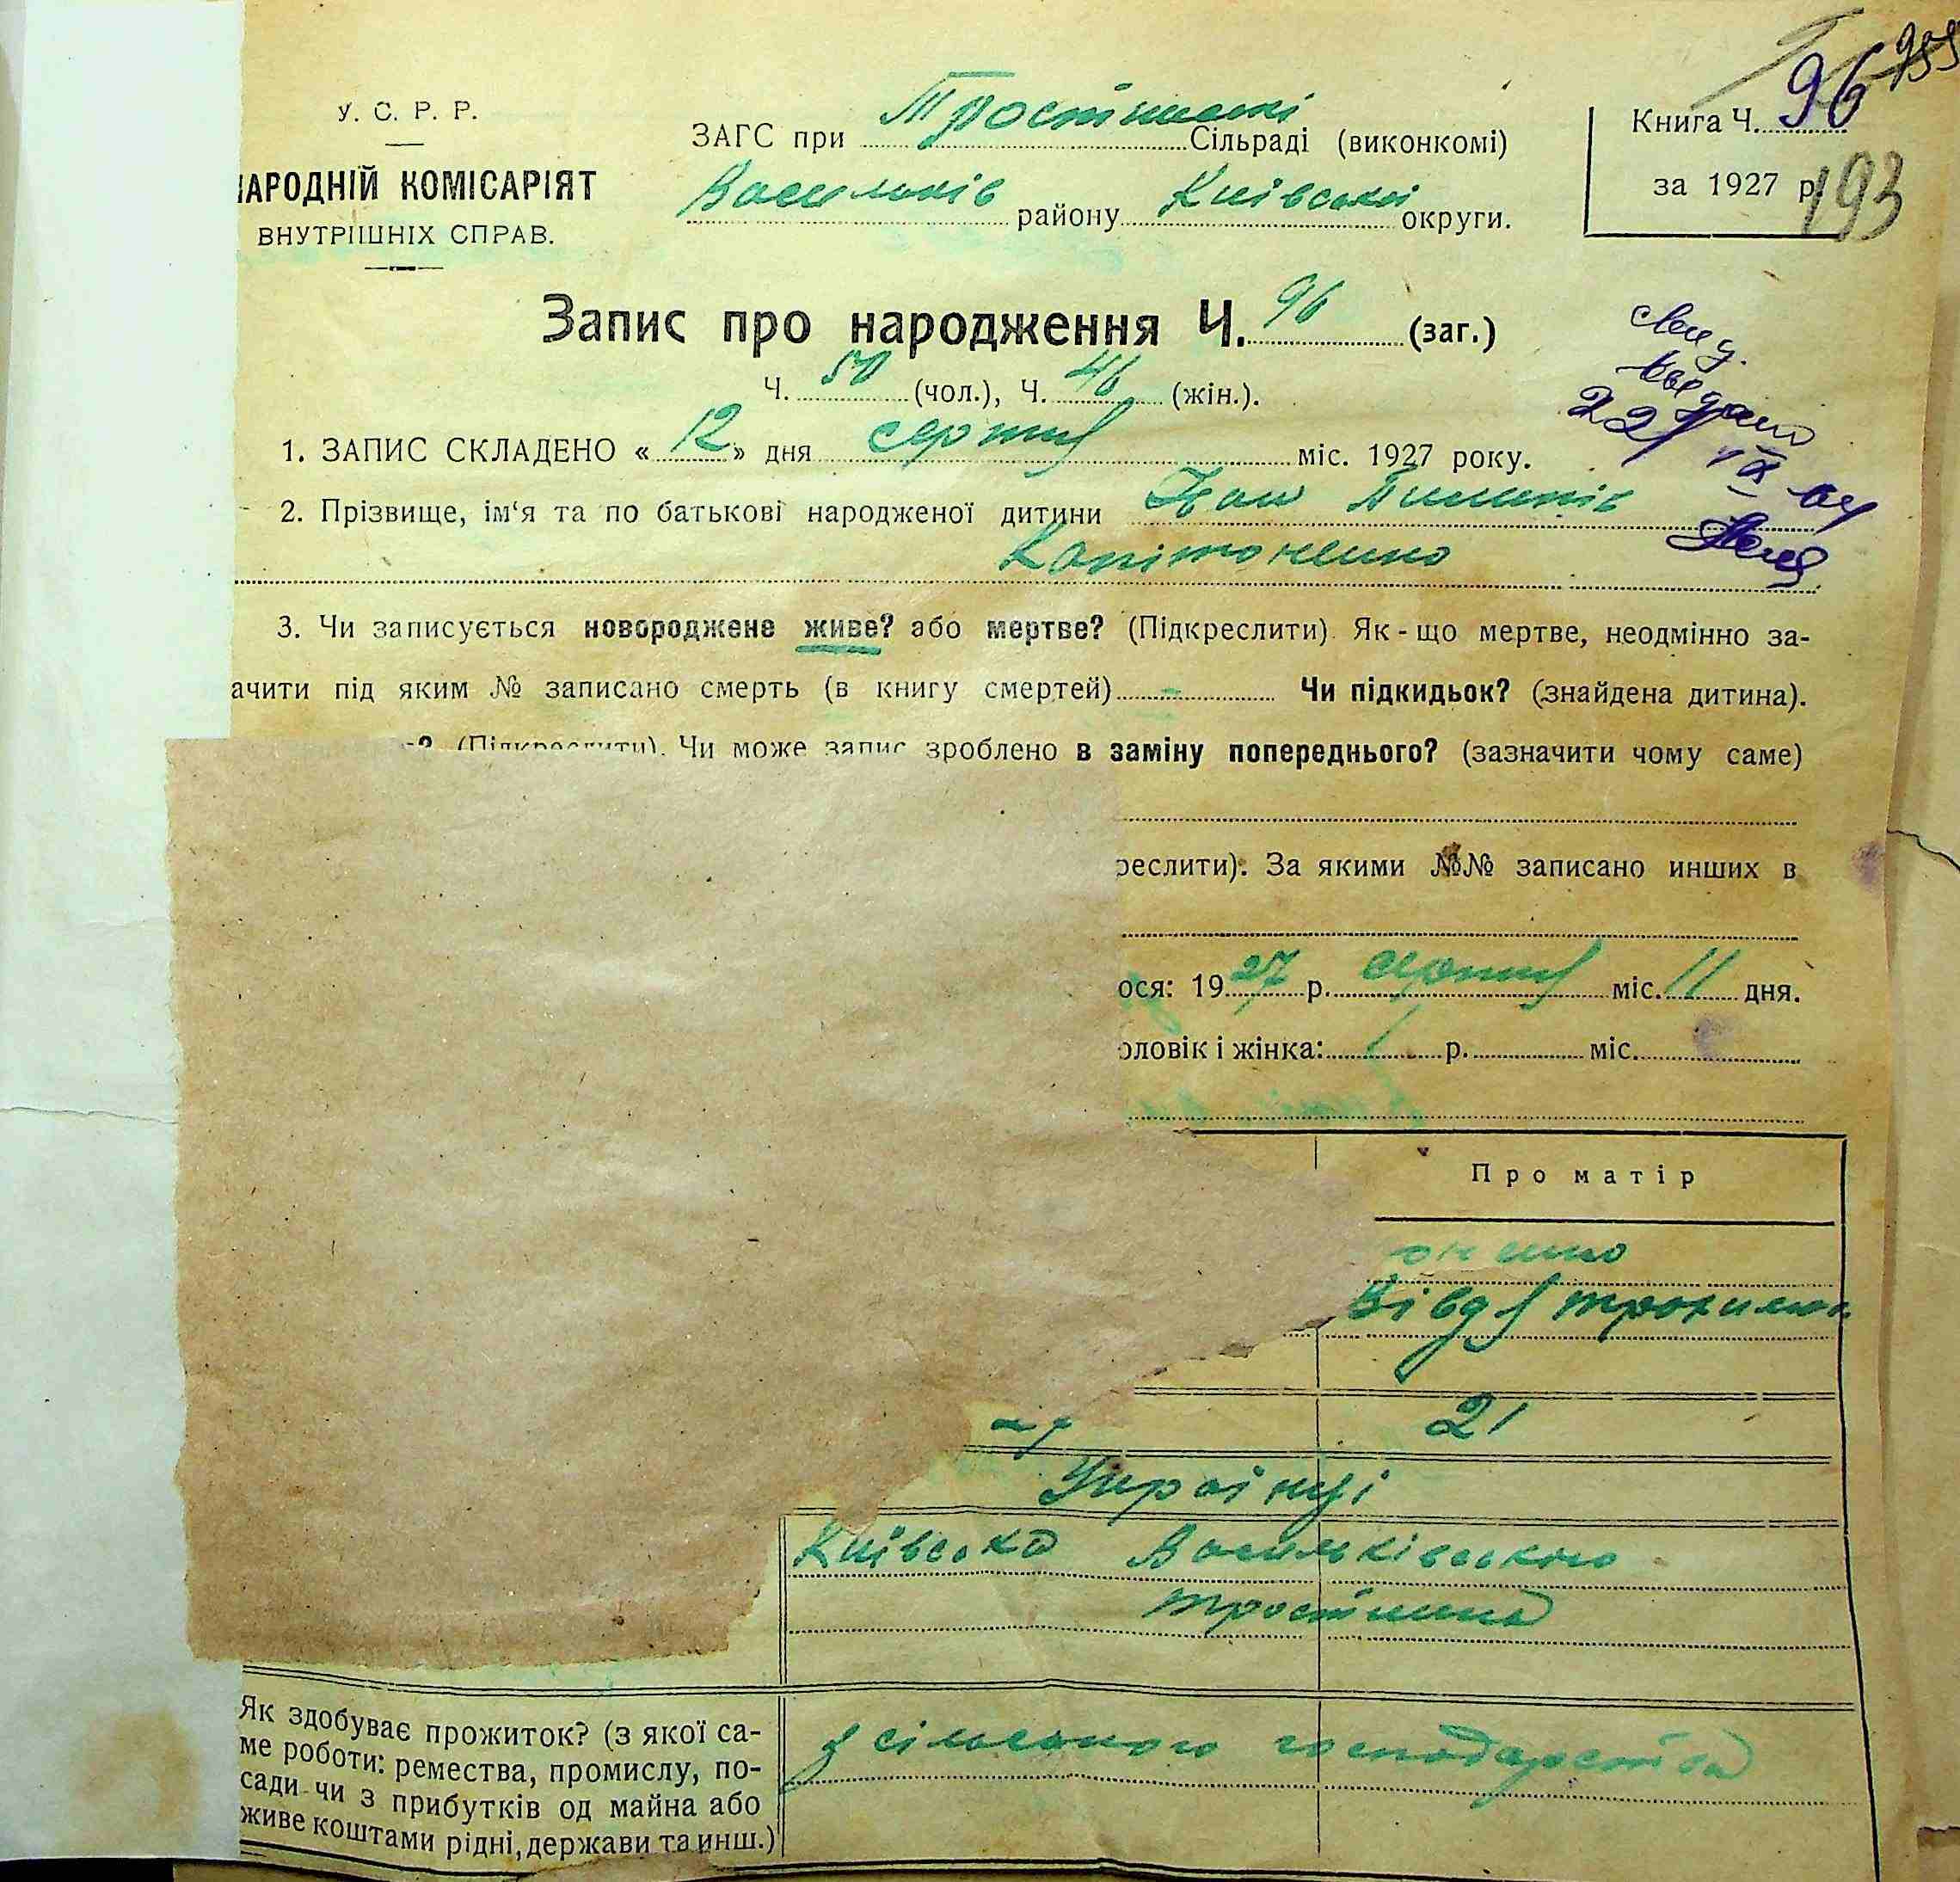 У. С. Р. Р.
АРОДНІЙ КОМІСАРІЯТ
ВНУТРІШНІХ СПРАВ.
ЗАГС при Тростинскі Сільраді (виконкомі)
Васильків району Київської округи.
Книга Ч. 96
за 1927 р. 193
Запис про народження Ч. 96 (заг.)
Ч. 50 (чол.), Ч. 46 (жін.).
1. ЗАПИС СКЛАДЕНО « 12 » дня серпня міс. 1927 року.
2. Прізвище, ім'я та по батькові народженої дитини Іван Пилипів
Капітоненко
3. Чи записується новороджене живе? або мертве? (Підкреслити). Як-що мертве, неодмінно за-
ачити під яким № записано смерть (в книгу смертей) - Чи підкидьок? (знайдена дитина).
(Підкреслити). Чи може запис зроблено в заміну попереднього? (зазначити чому саме)
реслити): За якими №№ записано инших в
ося: 1927 р. серпня міс. 11 дня.
оловік і жінка: р. міс.
Про матір
оненко
Трохимов
21
Українці
Київська Васильківського
Тростинка
Як здобуває прожиток? (з якої са-
ме роботи: ремества, промислу, по-
сади чи з прибутків од майна або
живе коштами рідні, держави та инш.)
з сільського господарства